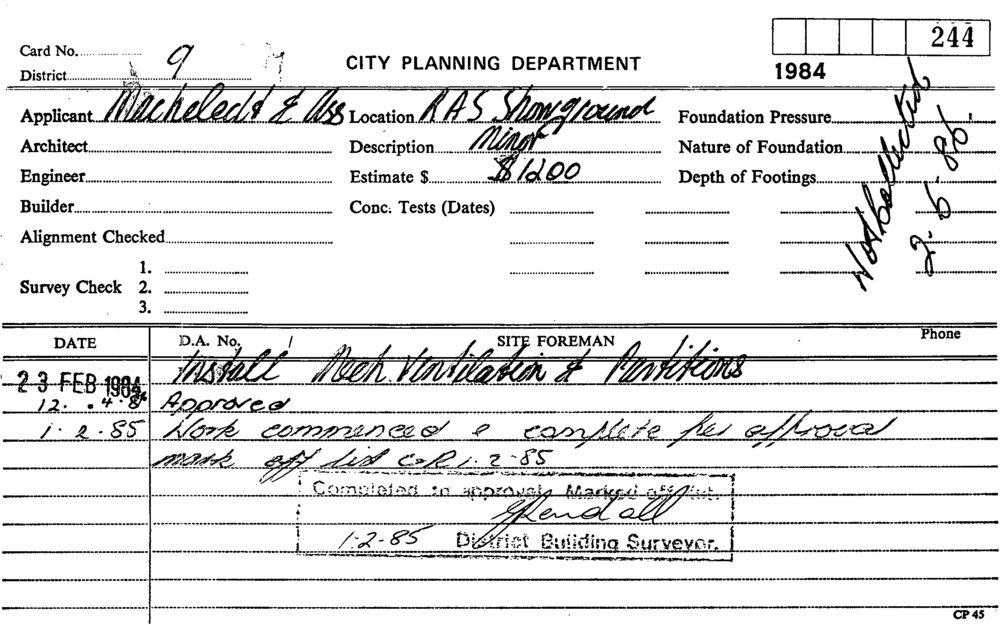 Card No. 244
District 9 CITY PLANNING DEPARTMENT 1984
Applicant Macheledt & Ass Location RAS Showground Foundation Pressure
Architect Description Minor Nature of Foundation
Engineer Estimate $ $1200 Depth of Footings
Builder Conc. Tests (Dates)
Alignment Checked
Not Collected
2.5.86.
1.
Survey Check 2.
3.
DATE D.A. No. / SITE FOREMAN Phone
23 FEB 1984 Install Mech Ventilation & Partitions
12. .4. Approved
1.2.85 Work commenced & complete per approval
mark off list 1.2.85
Completed to approval. Marked off list.
1.2.85 District Building Surveyor.
CP 45